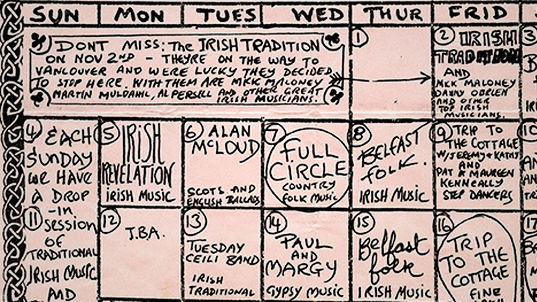 SUN MON TUES WED THUR FRID
DONT MISS: THE IRISH TRADITION
ON NOV 2ND - THEYRE ON THE WAY TO
VANCOUVER AND WERE LUCKY THEY DECIDED
TO STOP HERE. WITH THEM ARE MICK MALONEY
MARTIN MULDAHL, AL PERSELL AND OTHER GREAT
IRISH MUSICIANS.
1
2 IRISH
TRADITION
AND
MICK MALONEY
DANNY OBRIEN
AND OTHER
TOP IRISH
MUSICIANS.
3
4 EACH
SUNDAY
WE HAVE
A DROP
-IN
11 SESSION
OF
TRADITIONAL
IRISH MUSIC
AND
5 IRISH
REVELATION
IRISH MUSIC
6 ALAN
McLOUD
SCOTS AND
ENGLISH BALLADS
7
FULL
CIRCLE
COUNTRY
FOLK MUSIC
8 BELFAST
FOLK.
IRISH MUSIC
9 TRIP TO
THE COTTAGE
W/JEREMY & KATHY
AND
PAT & MAUREEN
KENNEALLY
STEP DANCERS
10
12
T.B.A.
13
TUESDAY
CEILI BAND
IRISH
TRADITIONAL
14
PAUL
AND
MARGY
GYPSY MUSIC
15
Belfast
folk
IRISH MUSIC
16
TRIP
TO THE
COTTAGE
FINE
17